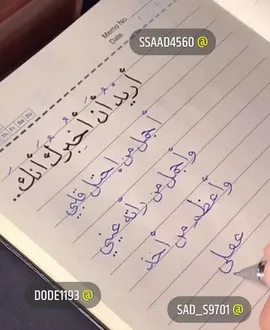 SSAAD4560 @
Memo No.
Date
Th Fr Sa Su
أريد أن أخبرك أنك..
أجمل من احتل قلبي
وأجمل من رأته عيني
وأعظم من أخذ
عقلي
DODE1193 @
SAD_S9701 @